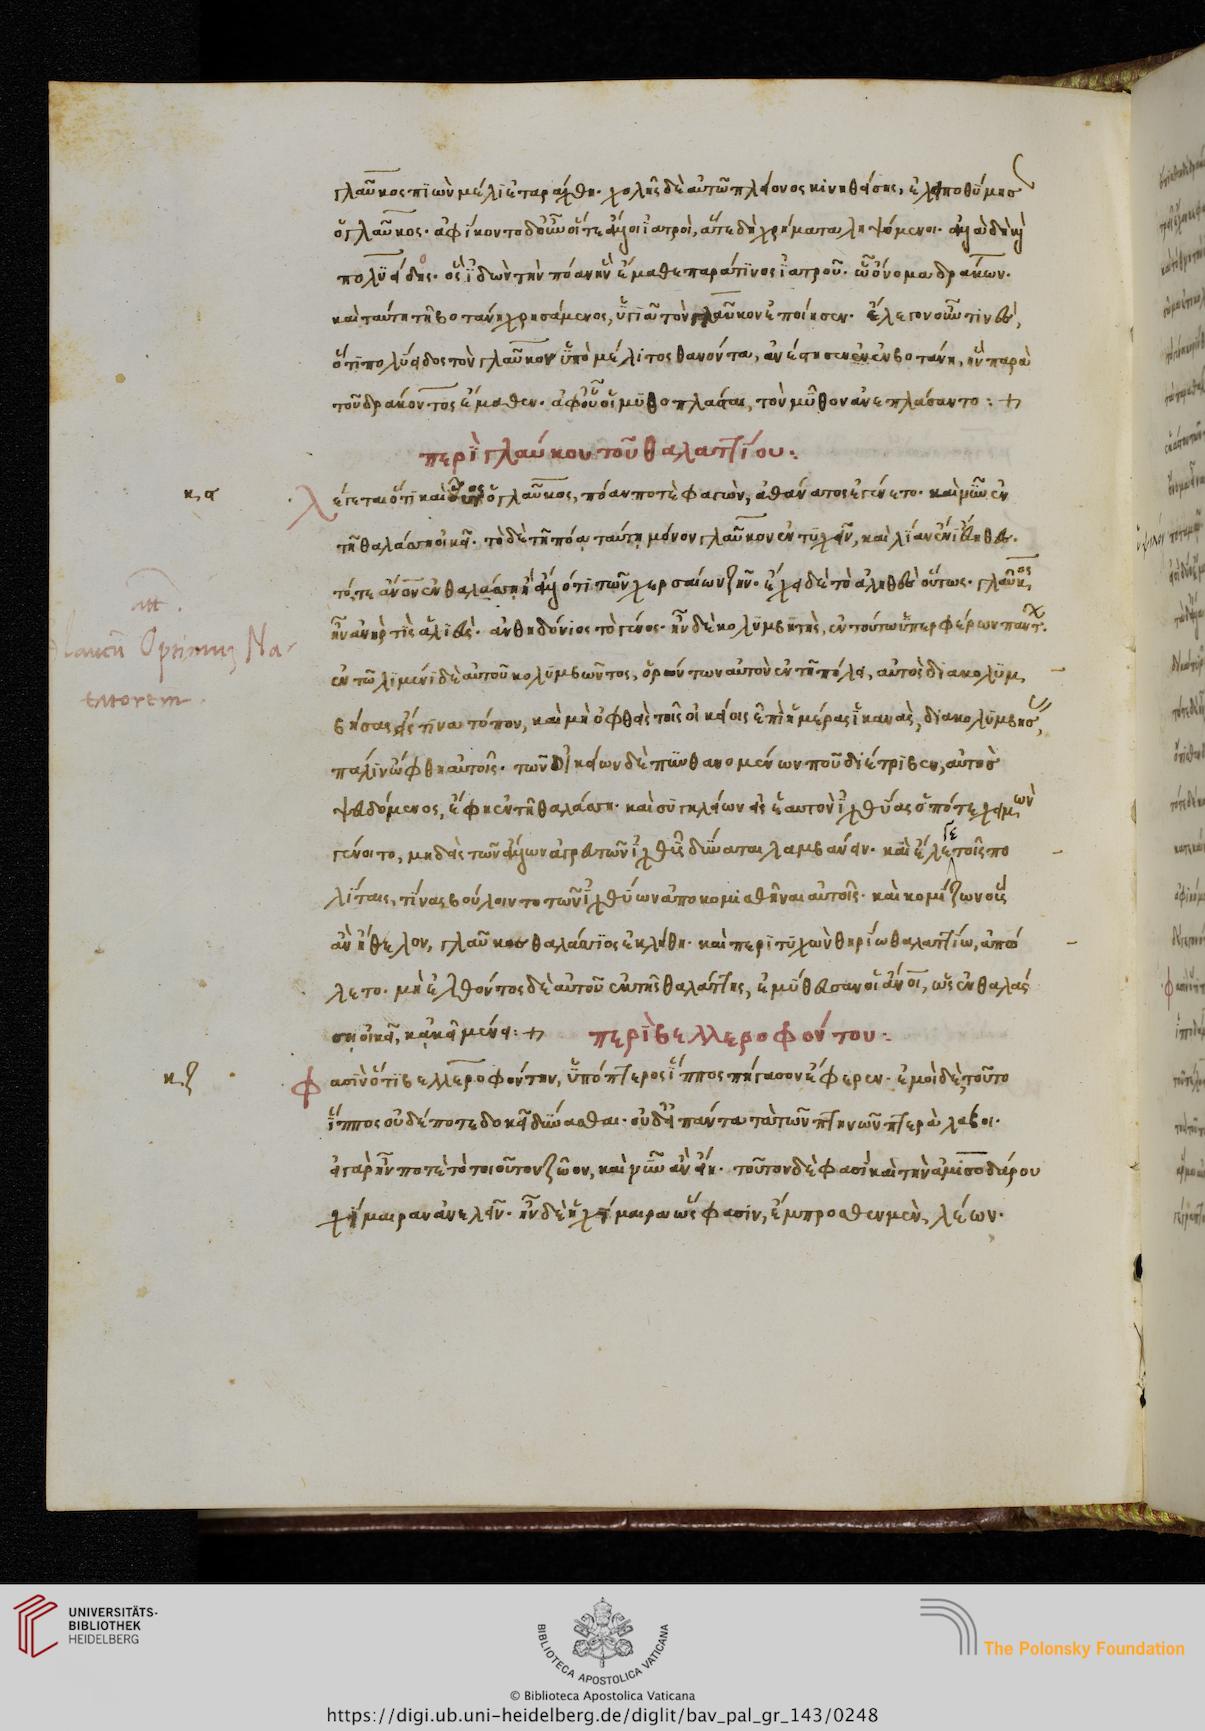 γλαῦκος πιὼν μέλι ἐταράχθη. χολῆς δὲ αὐτῶ πλείονος κινηθείσης, ἐλειποθύμησεν
ὁ γλαῦκος. ἀφίκοντο δὲ οὖν οἵ τε ἄλλοι ἰατροὶ, ἅτε δὴ χρήματα ληψόμενοι. ἀλλὰ δὴ καὶ
πολύειδος. ὃς ἰδὼν τὴν πόαν ἣν ἔμαθε παρά τινος ἰατροῦ. ᾧ ὄνομα δράκων.
καὶ ταύτη τῆ βοτάνη χρησάμενος, ὑγιᾶ τὸν γλαῦκον ἐποίησεν. ἔλεγον οὖν τινὲς,
ὅτι πολύειδος τὸν γλαῦκον ὑπὸ μέλιτος θανόντα, ἀνέστησεν ἐν βοτάνη, ἣν παρὰ
τοῦ δράκοντος ἔμαθεν. ἀφ' οὗ οἱ μυθοπλάσται, τὸν μῦθον ἀνεπλάσαντο :+
περὶ γλαύκου τοῦ θαλαττίου:
κϛ
λέγεται ὅτι καὶ οὗτος ὁ γλαῦκος, πόαν ποτὲ φαγὼν, ἀθάνατος ἐγένετο. καὶ νῦν ἐν
τῆ θαλάσση οἰκεῖ. τὸ δὲ τῆ πόα ταύτη μόνον γλαῦκον ἐντυχεῖν, καὶ λίαν εὔηθες.
τό, τε ἄνον ἐν θαλάσση ἢ ἄλλό τι τῶν χερσαίων ζῆν. ἔχει δὲ τὸ ἀληθὲς οὕτως. γλαῦκος
ἦν ἀνήρ τις ἁλιεὺς. ἀνθηδόνιος τὸ γένος. ἦν δὲ κολυμβητὴς, ἐν τούτω ὑπερφέρων πάντ.
ἐν τῶ λιμένι δὲ αὐτοῦ κολυμβῶντος, ὁρώντων αὐτὸν ἐν τῆ πόλει, αὐτὸς διακολυμ
βήσας εἴς τινα τόπον, καὶ μὴ ὀφθεὶς τοῖς οἰκείοις ἐπὶ ἡμέρας ἱκανὰς, διακολυμβήσας,
πάλιν ὤφθη αὐτοῖς. τῶν δ' οἰκείων δὲ πυνθανομένων ποῦ διέτριβεν, αὐτὸς
ψευδόμενος, ἔφη ἐν τῆ θαλάσση. καὶ συγκλείων εἰς ἑαυτὸν ἰχθύας ὁπότε χειμὼν
γένοιτο, μηδεὶς τῶν ἄλλων ἁλιευτῶν ἰχθῦς δύναται λαμβάνειν. καὶ ἔλεγε τοῖς πο
λίταις, τίνας βούλοιντο τῶν ἰχθύων ἀποκομισθῆναι αὐτοῖς. καὶ κομίζων οὓς
ἂν ἤθελον, γλαῦκος θαλάσσιος ἐκλήθη. καὶ περιτυχὼν θηρίω θαλαττίω, ἀπώ
λετο. μὴ ἐλθόντος δὲ αὐτοῦ ἐκ τῆς θαλάττης, ἐμύθευσαν οἱ ἄνοι, ὡς ἐν θαλάς
ση οἰκεῖ, κἀκεῖ μένει :+ περὶ βελλεροφόντου:
κζ
φασὶν ὅτι βελλεροφόντην, ὑπόπτερος ἵππος πήγασον ἔφερεν. ἐμοὶ δὲ τοῦτο
ἵππος οὐδέποτε δοκεῖ δύνασθαι. οὐδ' εἰ πάντα τὰ τῶν πτηνῶν πτερὰ λάβοι.
εἰ γὰρ ἦν ποτὲ τὸ τοιοῦτον ζῶον, καὶ νῦν ἂν εἴη. τοῦτον δὲ φασὶ καὶ τὴν ἀμισοδάρου
χίμαιραν ἀνελεῖν. ἦν δὲ ἡ χίμαιρα ὥς φασὶν, ἔμπροσθεν μὲν, λέων.
Glaucū Optimuʒ Na-
tatorem.
UNIVERSITÄTS-
BIBLIOTHEK
HEIDELBERG
BIBLIOTECA APOSTOLICA VATICANA
The Polonsky Foundation
© Biblioteca Apostolica Vaticana
https://digi.ub.uni-heidelberg.de/diglit/bav_pal_gr_143/0248